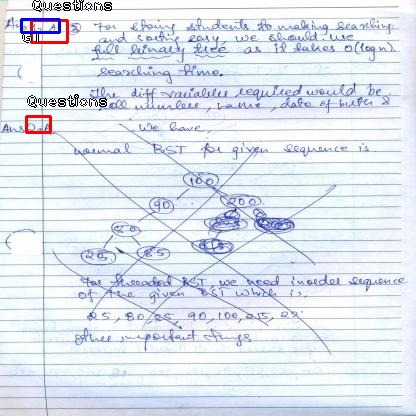 Questions
Ans
For storing students to making searching
and sorting easy, we should use
full binary tree as it takes O(logn)
searching time.
The diff variables required would be
roll number, name, date of birth &
Questions
Ans
We have,
normal BST for given sequence is
100
90 200
80
25 85
For threaded BST, we need inorder sequence
of the given BST which is,
25, 80, 85, 90, 100, 215,
other important things